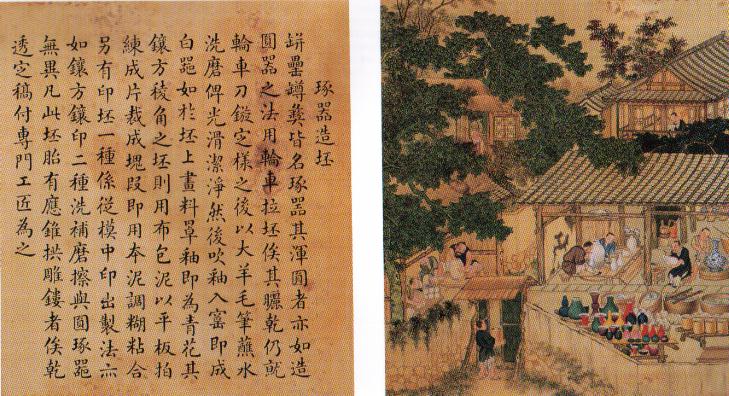 琢器造坯
缾罍罇彝皆名琢器其渾圓者亦如造
圓器之法用輪車拉坯俟其曬乾仍就
輪車刀鏇定樣之後以大羊毛筆蘸水
洗磨俾光滑潔淨然後吹釉入窰即成
白器如於坯上畫料罩釉即為青花其
鑲方稜角之坯則用布包泥以平板拍
練成片裁成塊段即用本泥調糊粘合
另有印坯一種係從模中印出製法亦
如鑲方鑲印二種洗補磨擦與圓琢器
無異凡此坯胎有應錐拱雕鏤者俟乾
透定稿付專門工匠為之